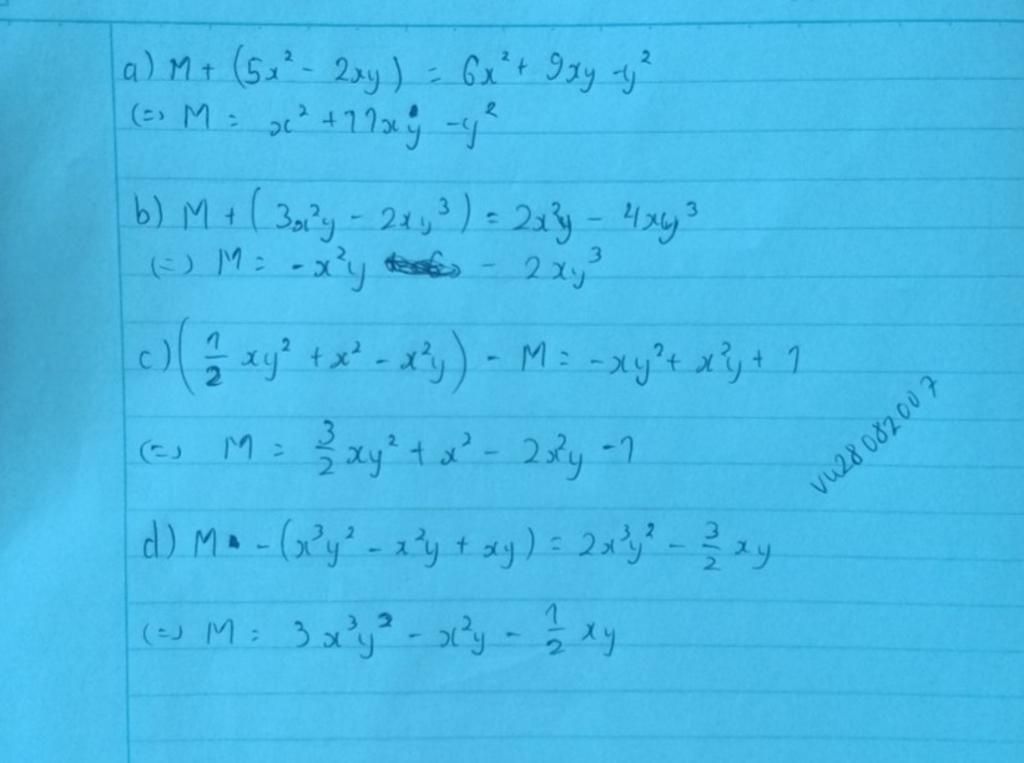 a) M + (5x² - 2xy) = 6x² + 9xy - y²
(=) M = x² + 11xy - y²
b) M + (3x²y - 2xy³) = 2x²y - 4xy³
(=) M = -x²y - 2xy³
c) (1/2 xy² + x² - x²y) - M = -xy² + x²y + 1
(=) M = 3/2 xy² + x² - 2x²y - 1
vu28082007
d) M - (x³y² - x²y + xy) = 2x³y² - 3/2 xy
(=) M = 3x³y² - x²y - 1/2 xy